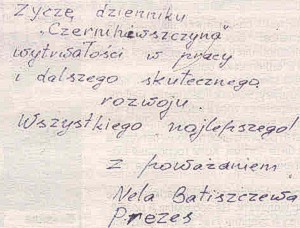 Życzę dzienniku
„Czernihiwszczyna”
wytrwałości w pracy
i dalszego skutecznego
rozwoju.
Wszystkiego najlepszego!
Z poważaniem
Nela Batiszczewa
Prezes